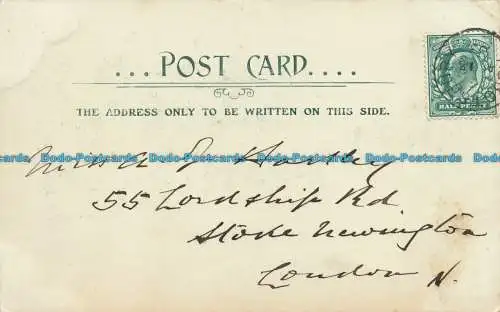 ... POST CARD....
THE ADDRESS ONLY TO BE WRITTEN ON THIS SIDE.
HALF PENNY
Dodo-Postcards Dodo-Postcards Dodo-Postcards Dodo-Postcards Dodo-Postcards
55 Lordship Rd
Stoke Newington
London N.